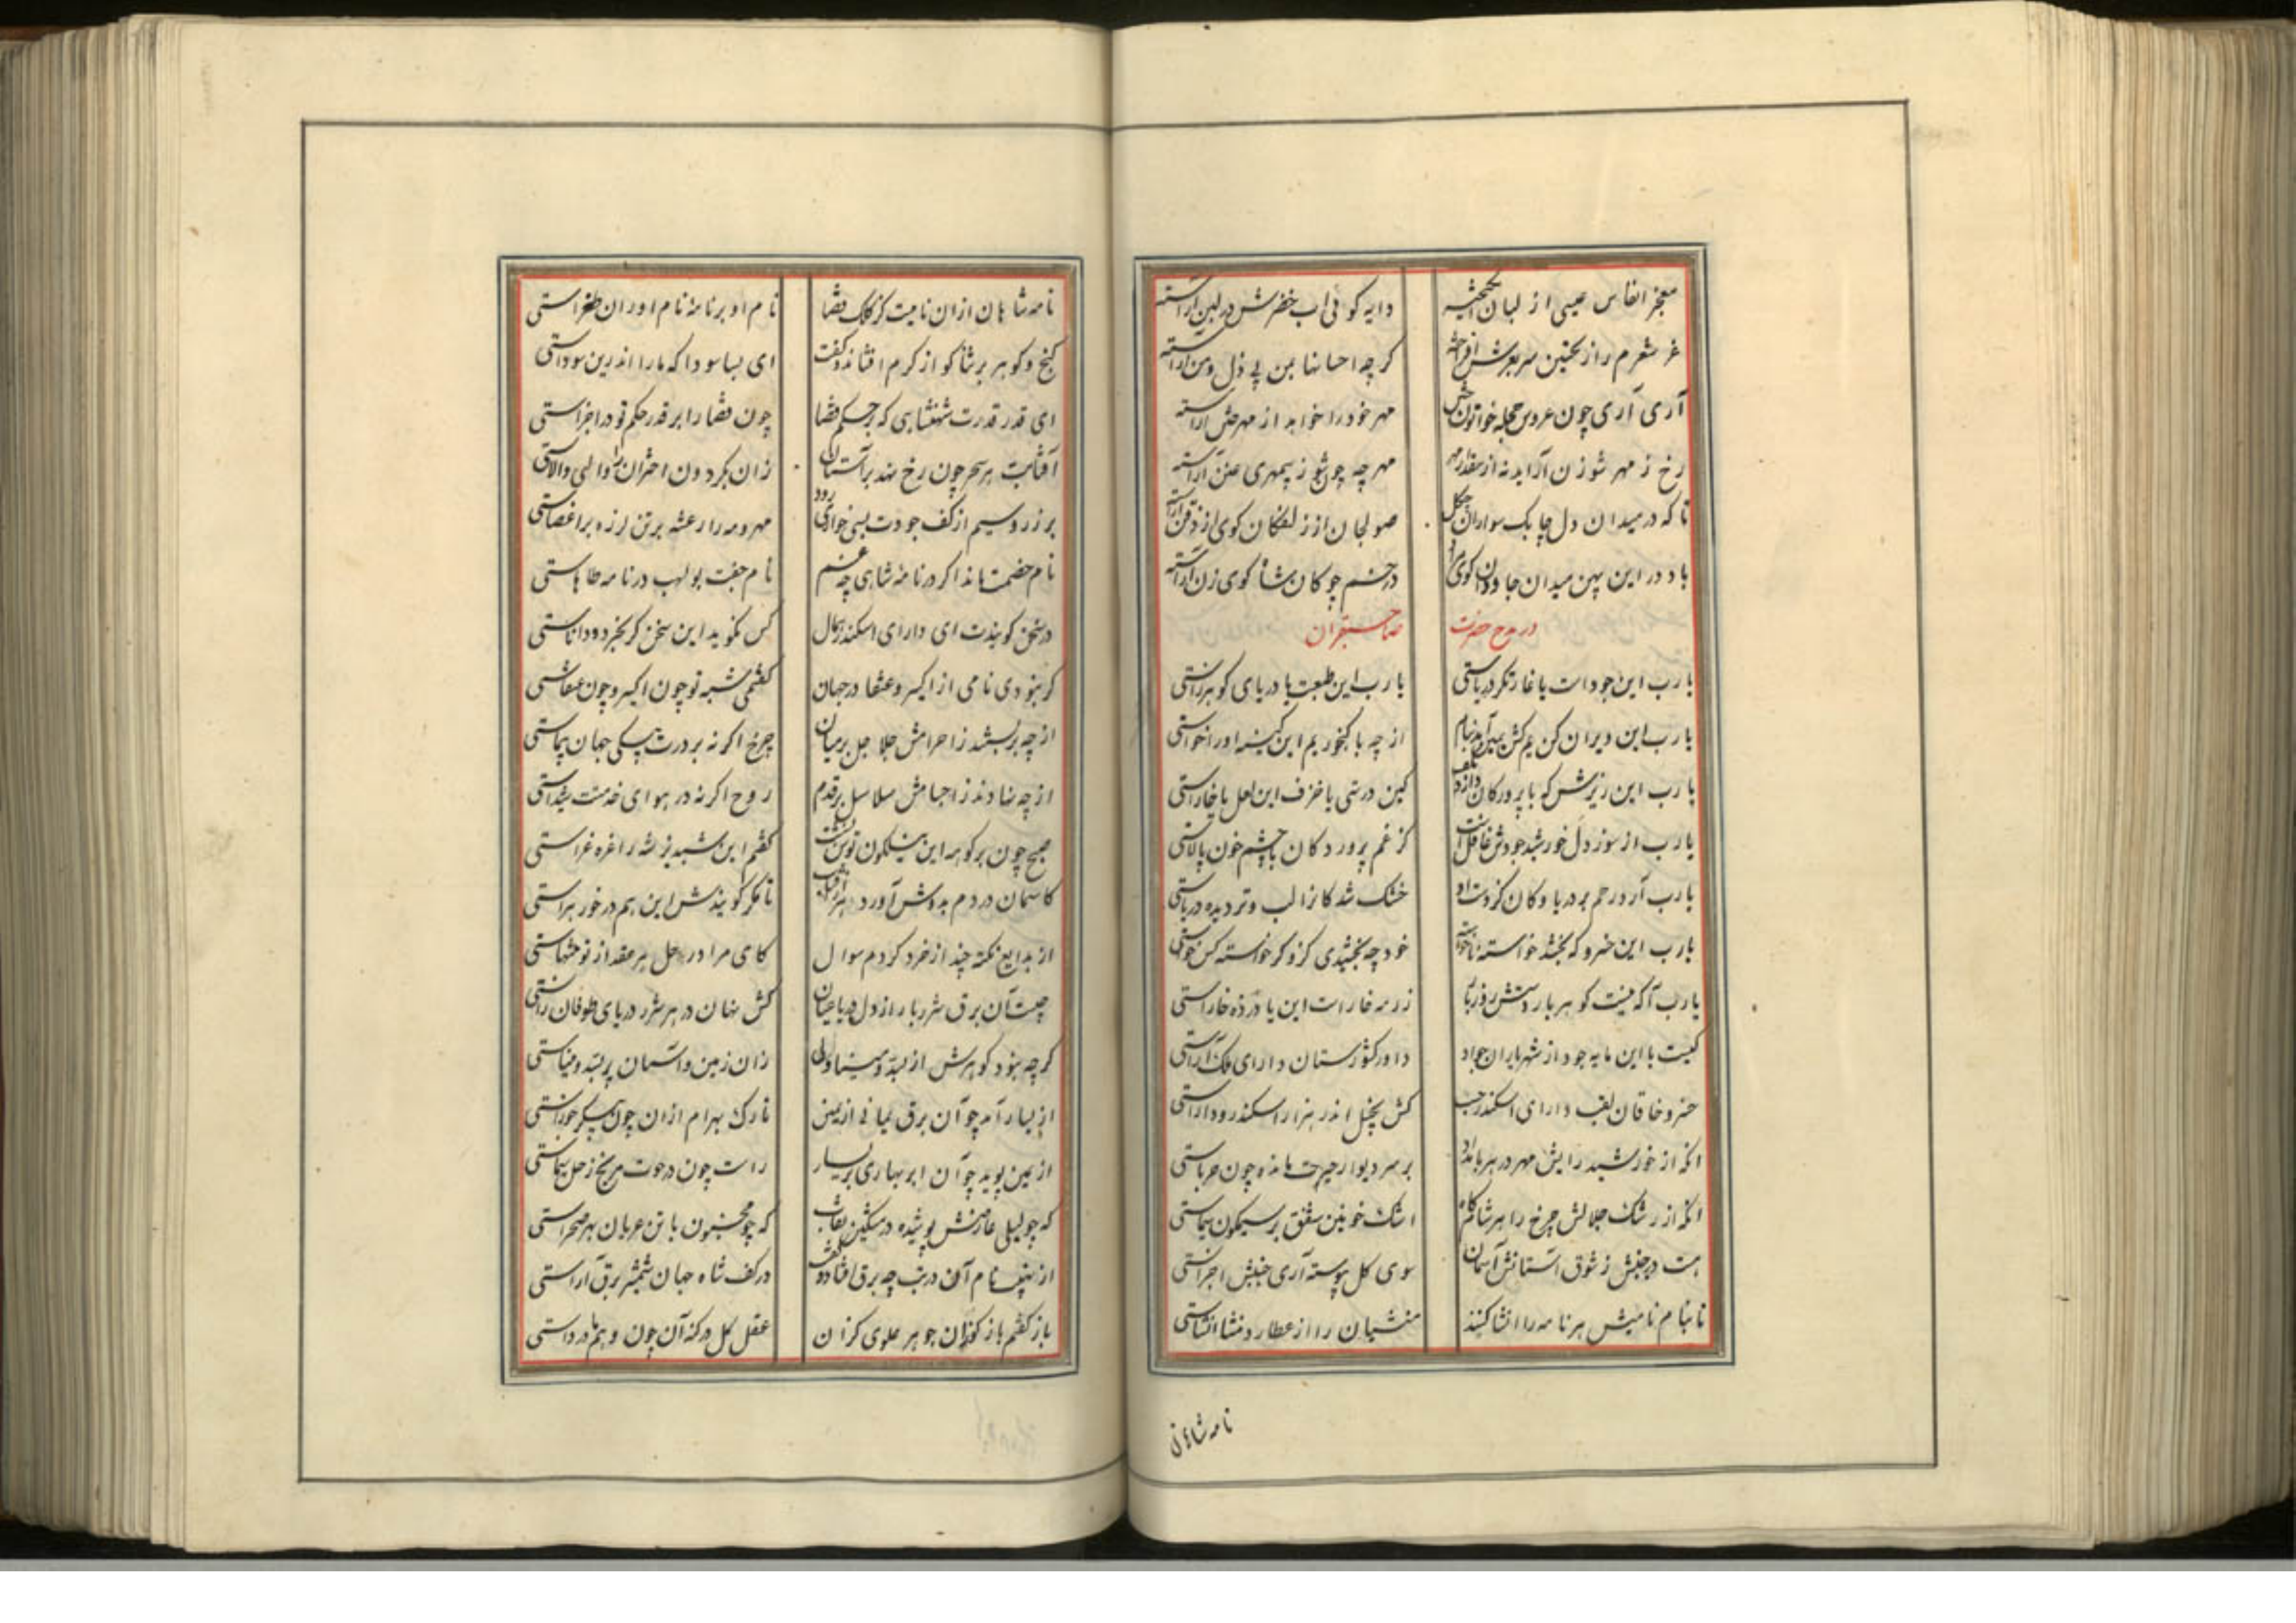 معجز انفاس عیسی از لبان
دایه کو فی اب خضرش در لبن اراسته
غر شعرم را ز تحسین سر بعرش افراخته
کر چه احسانها بمن بی ذل و من اراسته
آری آری چون عروس حجله خواتون
مهر خود را خواهد از مهر ختن اراسته
رخ ز مهر شو زن آراید نه از مقدار مهر
مهر چه چو شو ز بیمهری عنن اراسته
تا که در میدان دل چابک سواران چکل
صولجان از زلفکان کوی از ذقن اراسته
باد در این پهن میدان جاودان کوی مراد
در خم چوکان شا کوی زن اراسته
در مدح حضرت
صاحبقران
یا رب این جود ات یا غارتکر دریاستی
یا رب این طبعت یا دریای کوهرزاستی
یا رب این ویران کن یم کش
از چه با کنجور یم این کینه او را خواستی
یا رب این ریزش که با پرورد کان
کین درستی با خزف این لعل یا خاراستی
یا رب از سوز دل خورشید جودش غافل است
کز غم پرورد کان با چشم خون پالاستی
یا رب آرد رحم بر دریا و کان کز دست او
خشک شد کانرا لب و تر دیده دریاستی
یا رب این خسرو که بخشد خواسته ناخواسته
خود چه بخشیدی کزو کر خواسته کس خواستی
یا رب آکه نیست کو هر بار دستش زر بار
زر مه خار است این یا در ذه خاراستی
کیست با این مایه جود از شهریاران جواد
داور کشورستان دارای ملک آراستی
خسرو خاقان لقب دارای اسکندر حسب
کش بخیل اندر هزار اسکندر و داراستی
انکه از خورشید رایش مهر در هر بامداد
بر سر دیوار حیرت مانده چون حرباستی
انکه از رشک جلالش چرخ را هر شامگاه
اشک خونین شفق بر سیمکون سیماستی
هست در جنبش ز شوق استانش آسمان
سوی کل پیوسته آری جنبش اجزاستی
تا بنام نامیش هر نامه را انشا کنند
منشیان را از عطارد منشا انشاستی
نامه شاهان
نامه شاهان از ان نامیست کز کلک قضا
نام او بر نامهٔ نام اوران طغراستی
کنج و کوهر بر شا کو از کرم افشاند و کفت
ای بسا سودا که ما را اندرین سوداستی
ای قدر قدرت شهنشاهی که بر حکم قضا
چون قضا را بر قدر حکم تو در اجراستی
آفتابت هر سحر چون رخ نهد بر آستان
زان بکردون اختران را والی والاستی
بر زر و سیم از کف جودت بسی خواری رود
مهر و مه را رعشه بر تن لرزه بر اعضاستی
نام خصمت ماند اکر در نامهٔ شاهی چه غم
نام جفت بولهب در نامه طاهاستی
در سخن کویندت ای دارای اسکندر همال
کس نکوید این سخن کر بخرد و داناستی
کر نبودی نامی از اکسیر و عنقا در جهان
کفتمی شبه تو چون اکسیر و چون عنقاستی
از چه بربستند ز اجرامش جلاجل بر میان
چرخ اکر نه بر درت پیکی جهان پیماستی
از چه بنهادند ز اجسامش سلاسل بر قدم
روح اکر نه در هوای خدمتت شیداستی
صبح چون بر کوهه این نیلکون توسن نشست
کفتم این شبدیز شه را غره غراستی
کاسمان در دم بدوش آورد
تا مکر کویندش این هم در خور هراستی
از بدایع نکته چند از خرد کردم سوال
کای مرا در حل هر عقد از تو منتهاستی
چیست آن برق شرر بار از دل دریا عیان
کش نهان در هر شرر دریای طوفان زاستی
کر چه نبود کوهرش از لبد و مینا ولی
زان زمین و آسمان پر لبد و میناستی
از یسار آمد چو آن برق یمانی از یمین
تارک بهرام از ان چون پیکر جوزاستی
از یمین پوید چو آن ابر بهاری بر یسار
راست چون در حوت مریخ زحل سیماستی
که چو لیلی عارضش پوشیده در مشکین نقاب
که چو مجنون با تن عریان بهر صحراستی
از نهیب نام آن در تب چه برق افتاد و کفت
در کف شاه جهان شمشیر برق آراستی
باز کفتم باز کو زان جوهر علوی کز ان
عقل کل در کنه آن چون وهم در واستی